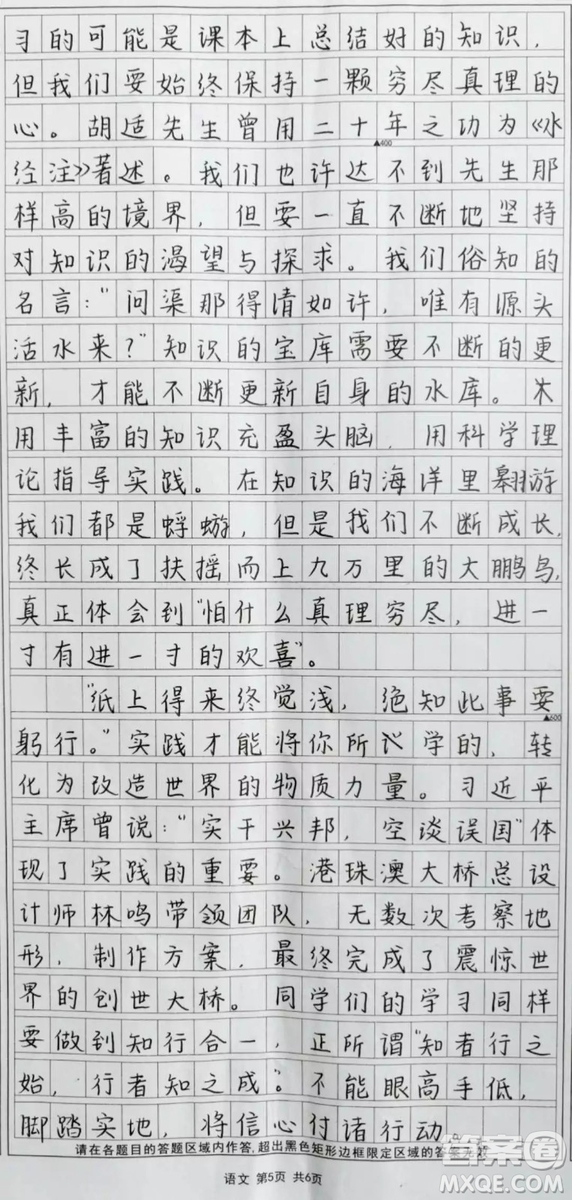 习的可能是课本上总结好的知识，
但我们要始终保持一颗穷尽真理的
心。胡适先生曾用二十年之功为《水
▲400
经注》著述。我们也许达不到先生那
样高的境界，但要一直不断地坚持
对知识的渴望与探求。我们俗知的
名言："问渠那得清如许，唯有源头
活水来？"知识的宝库需要不断的更
新，才能不断更新自身的水库。木
用丰富的知识充盈头脑，用科学理
论指导实践。在知识的海洋里翱游
我们都是蜉蝣，但是我们不断成长，
终长成了扶摇而上九万里的大鹏鸟，
真正体会到"怕什么真理穷尽，进一
寸有进一寸的欢喜"。
"纸上得来终觉浅，绝知此事要
▲600
躬行。"实践才能将你所学的，转
化为改造世界的物质力量。习近平
主席曾说："实干兴邦，空谈误国"体
现了实践的重要。港珠澳大桥总设
计师林鸣带领团队，无数次考察地
形，制作方案，最终完成了震惊世
界的创世大桥。同学们的学习同样
要做到知行合一，正所谓"知者行之
始，行者知之成"。不能眼高手低，
脚踏实地，将信心付诸行动。
请在各题目的答题区域内作答，超出黑色矩形边框限定区域的答案无效
语文 第5页 共6页
答案圈
MXQE.COM